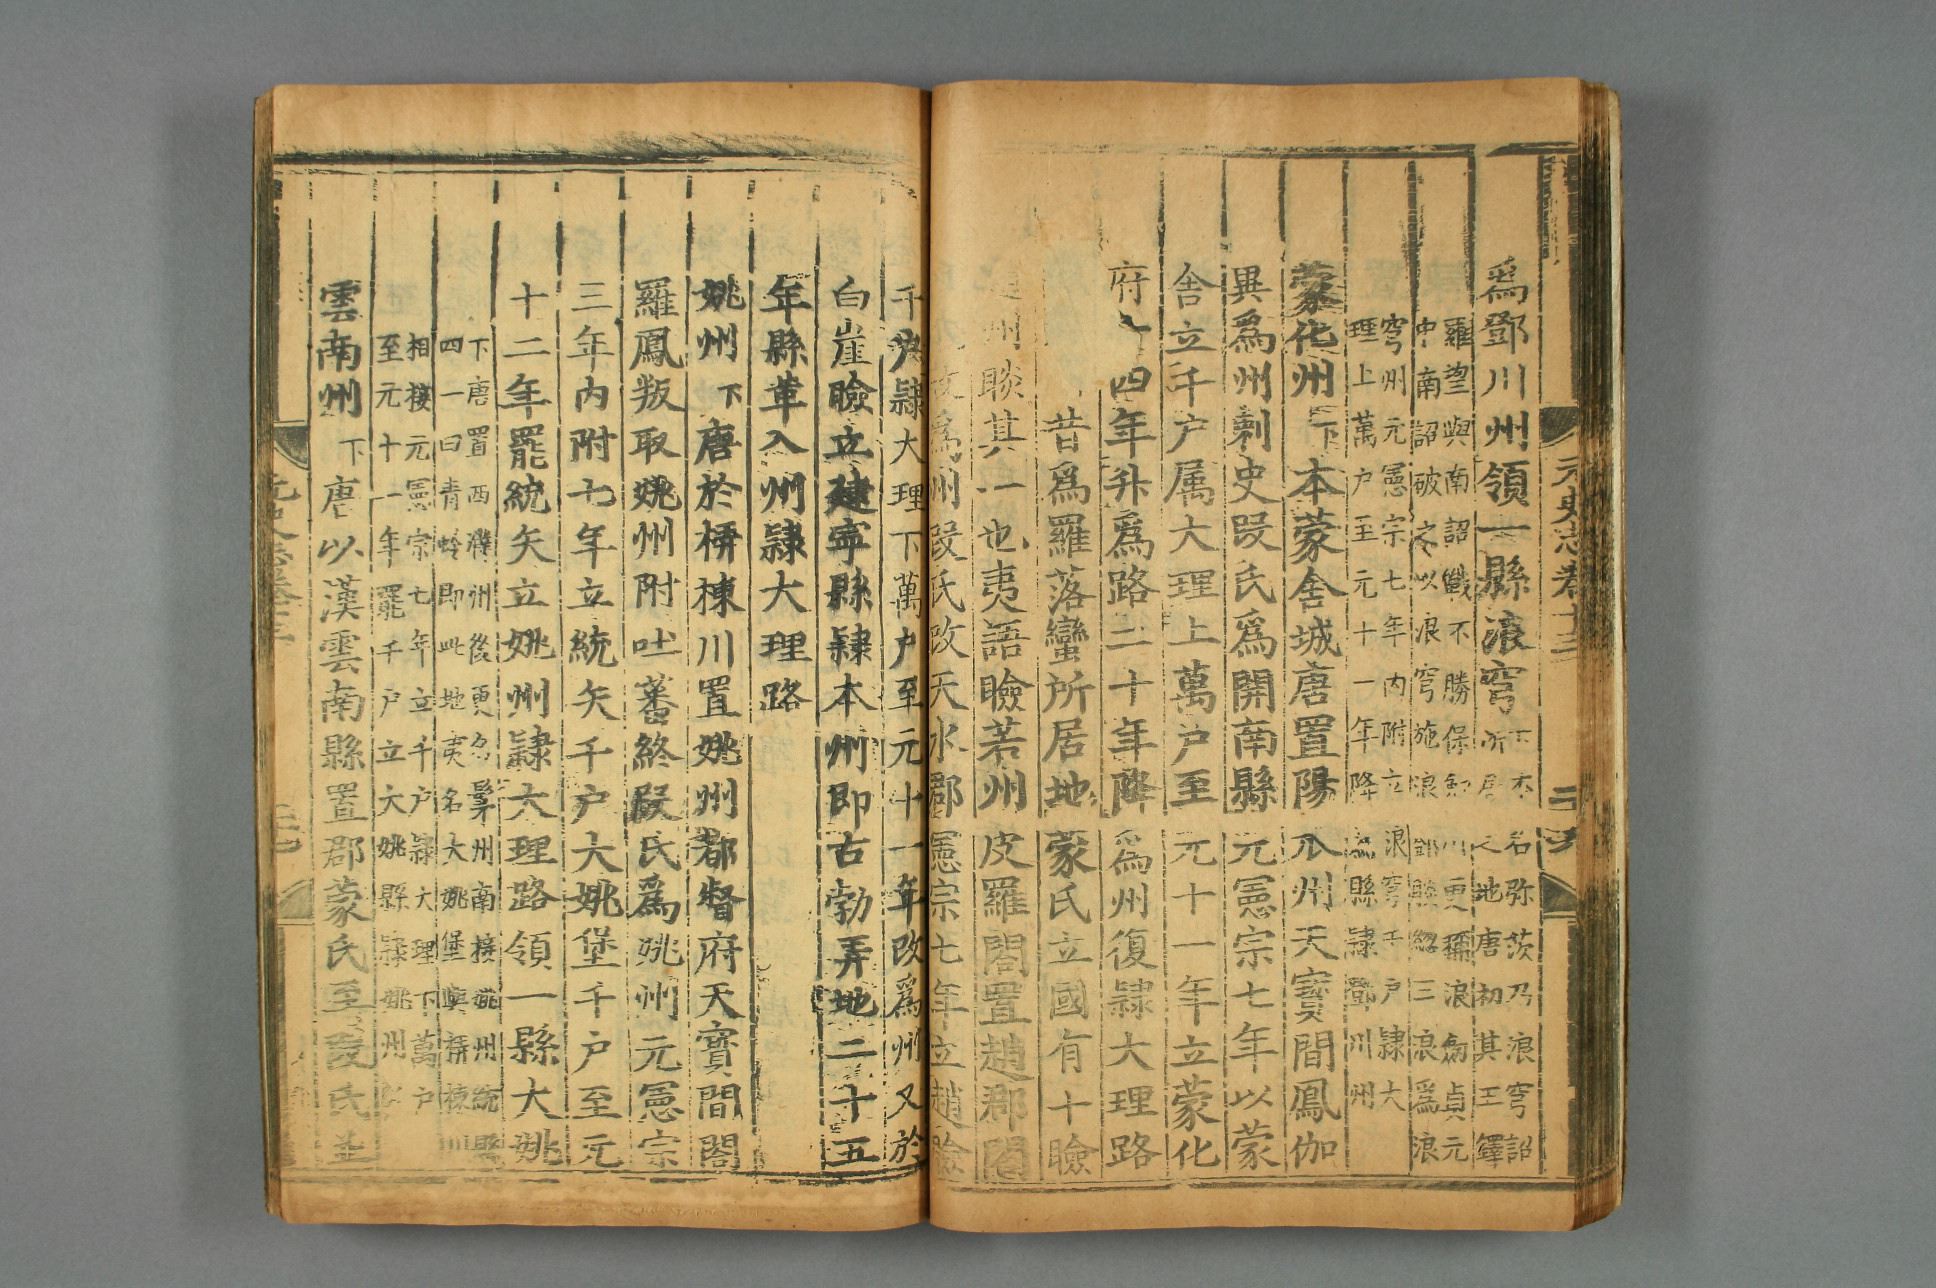 元史志卷十三 二六
爲鄧川州領一縣浪穹 下 本名弥茨乃浪穹詔
所居之地唐初其王鐸
羅望與南詔戰不勝保劔川更稱浪劔貞元
中南詔破之以浪穹施浪鄧睒總三浪爲浪
穹州元憲宗七年内附立浪穹千戶隸大
理上萬戶至元十一年降爲縣隸鄧川州
蒙化州 下 本蒙舍城唐置陽瓜州天寶間鳳伽
異爲州剌史叚氏爲開南縣元憲宗七年以蒙
舍立千户属大理上萬户至元十一年立蒙化
府十四年升爲路二十年降爲州復隸大理路
昔爲羅落蠻所居地蒙氏立國有十瞼
州睒其一也夷語瞼若州皮羅閣置趙郡閣
改爲州叚氏改天水郡憲宗七年立趙瞼
千戶隸大理下萬户至元十一年改爲州又於
白崖瞼立建寧縣隸本州即古勃弄地二十五
年縣革入州隸大理路
姚州 下 唐於楀棟川置姚州都督府天寶間閣
羅鳳叛取姚州附吐蕃終叚氏爲姚州元憲宗
三年内附七年立統矢千户大姚堡千户至元
十二年罷統矢立姚州隸大理路領一縣大姚
下唐置西濮州後更名髳州南接姚州統縣
四一曰青蛉即此地夷名大姚堡與楀棟川
相接元憲宗七年立千户隸大理下萬户
至元十一年罷千户立大姚縣隸姚州
雲南州 下 唐以漢雲南縣置郡蒙氏至叚氏並